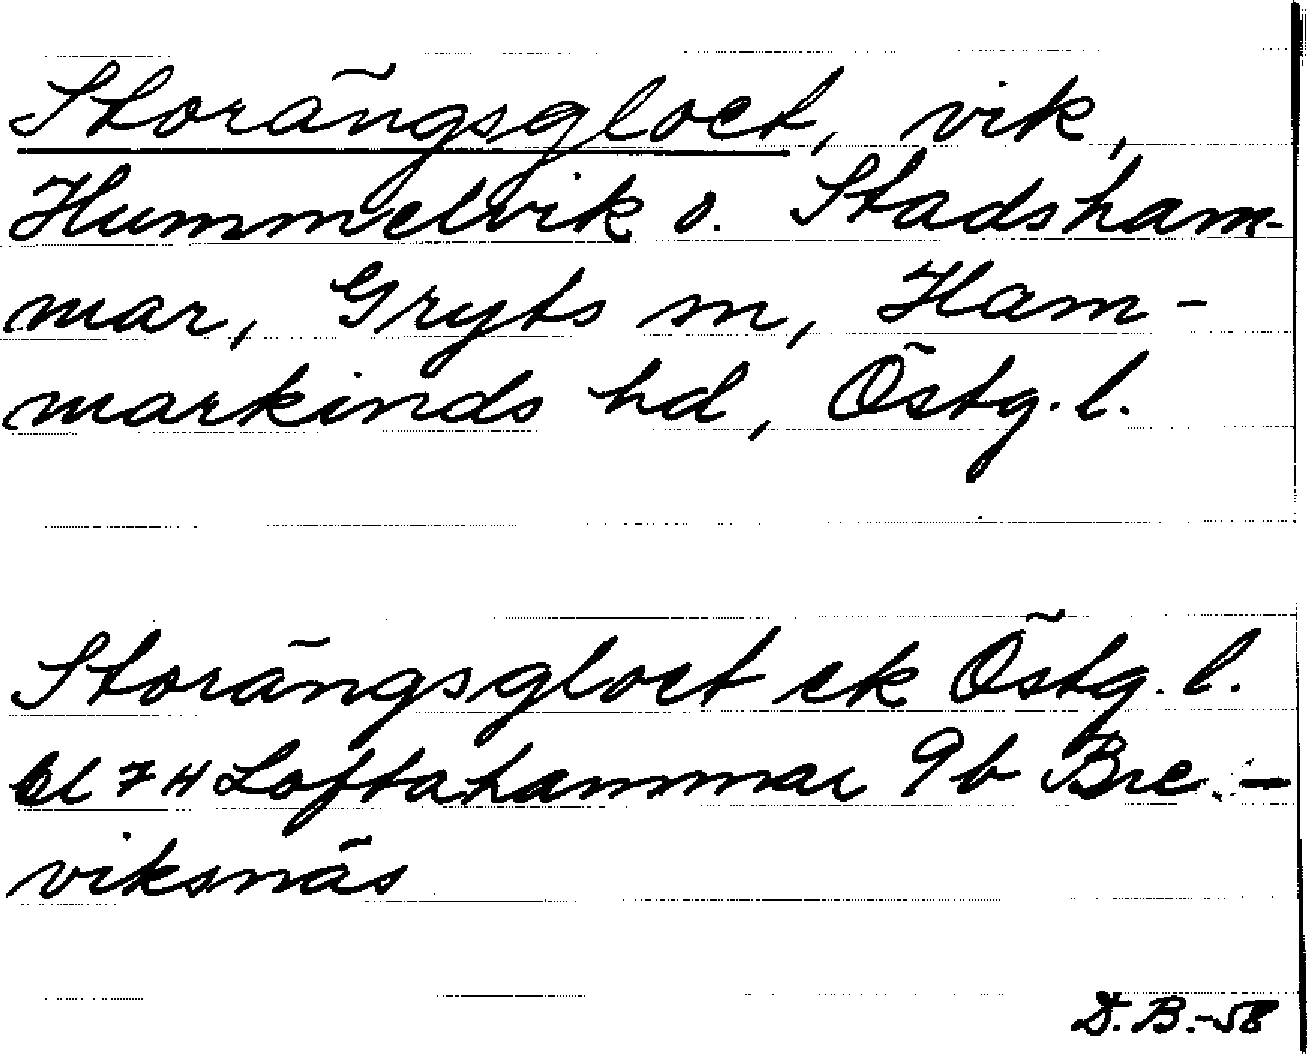 Storängsgloet, vik,
Hummelvik o. Stadsham-
mar, Gryts sn, Ham-
markinds hd, Östg. l.
Storängsgloet ek Östg. l.
bl 7 H Loftahammar 9b Bre-
viksnäs
D. B. -58